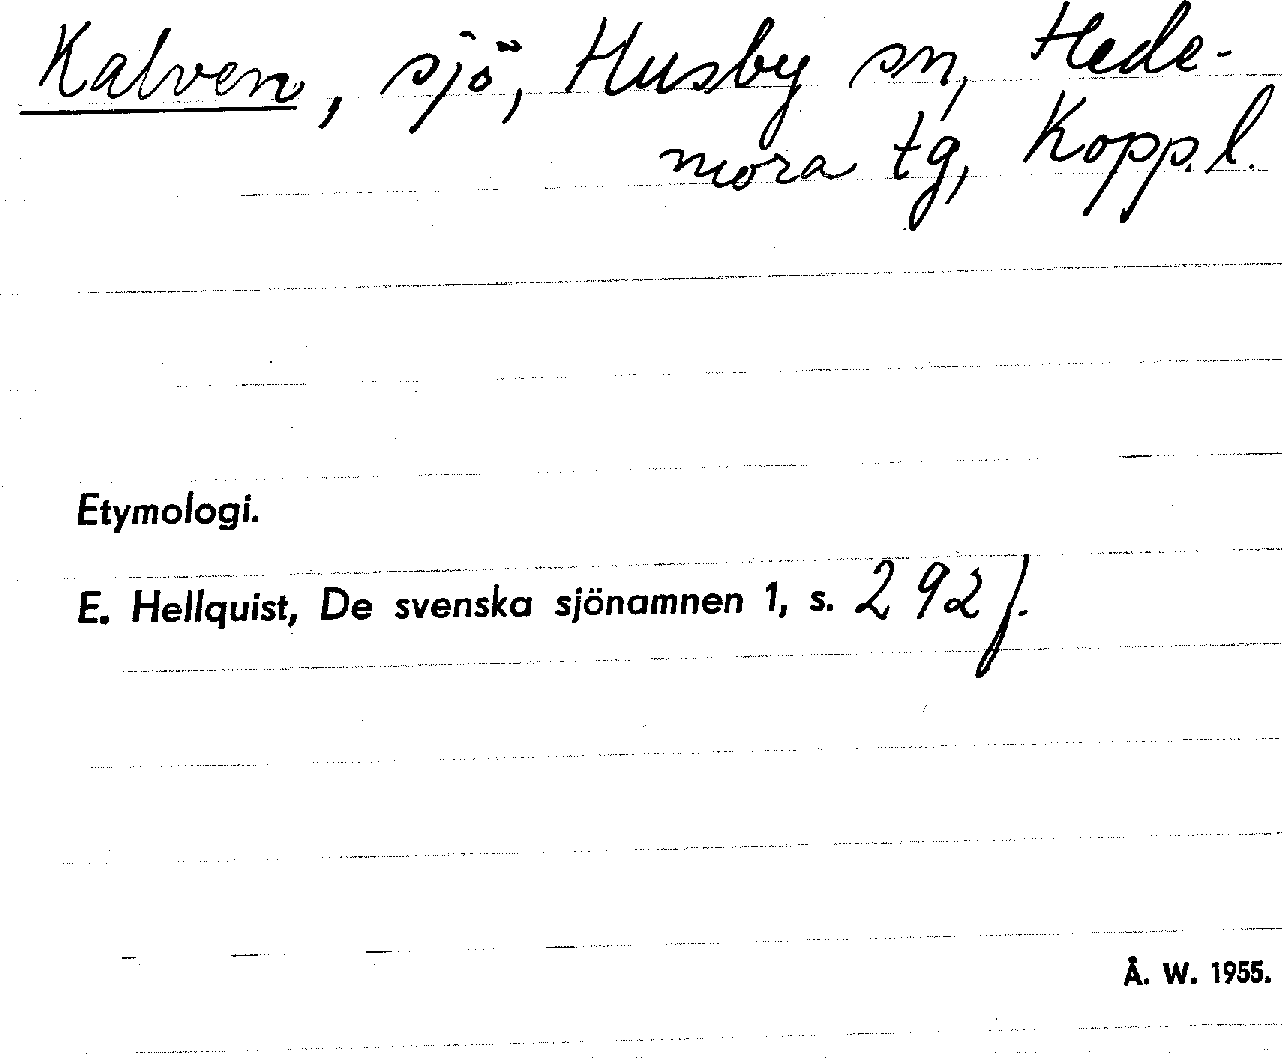 Kalven, sjö, Husby sn, Hede-
mora tg, Kopp.l.
Etymologi.
E. Hellquist, De svenska sjönamnen 1, s. 292 f.
Å. W. 1955.